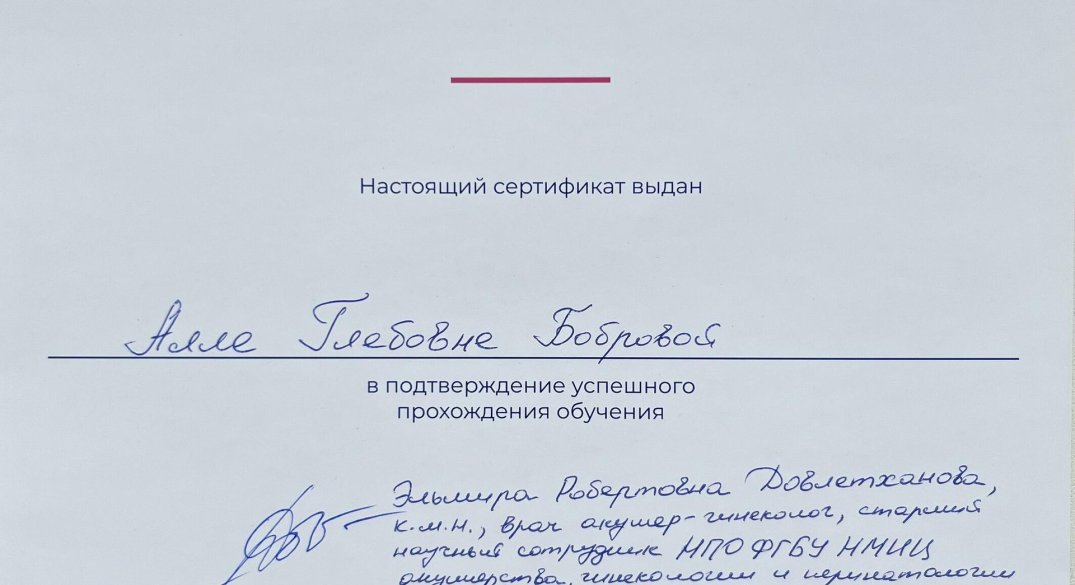 Настоящий сертификат выдан
Алле Глебовне Бобровой
в подтверждение успешного
прохождения обучения
Эльмира Робертовна Довлетханова,
к.м.н., врач акушер-гинеколог, старший
научный сотрудник НПО ФГБУ НМИЦ
акушерства, гинекологии и перинатологии